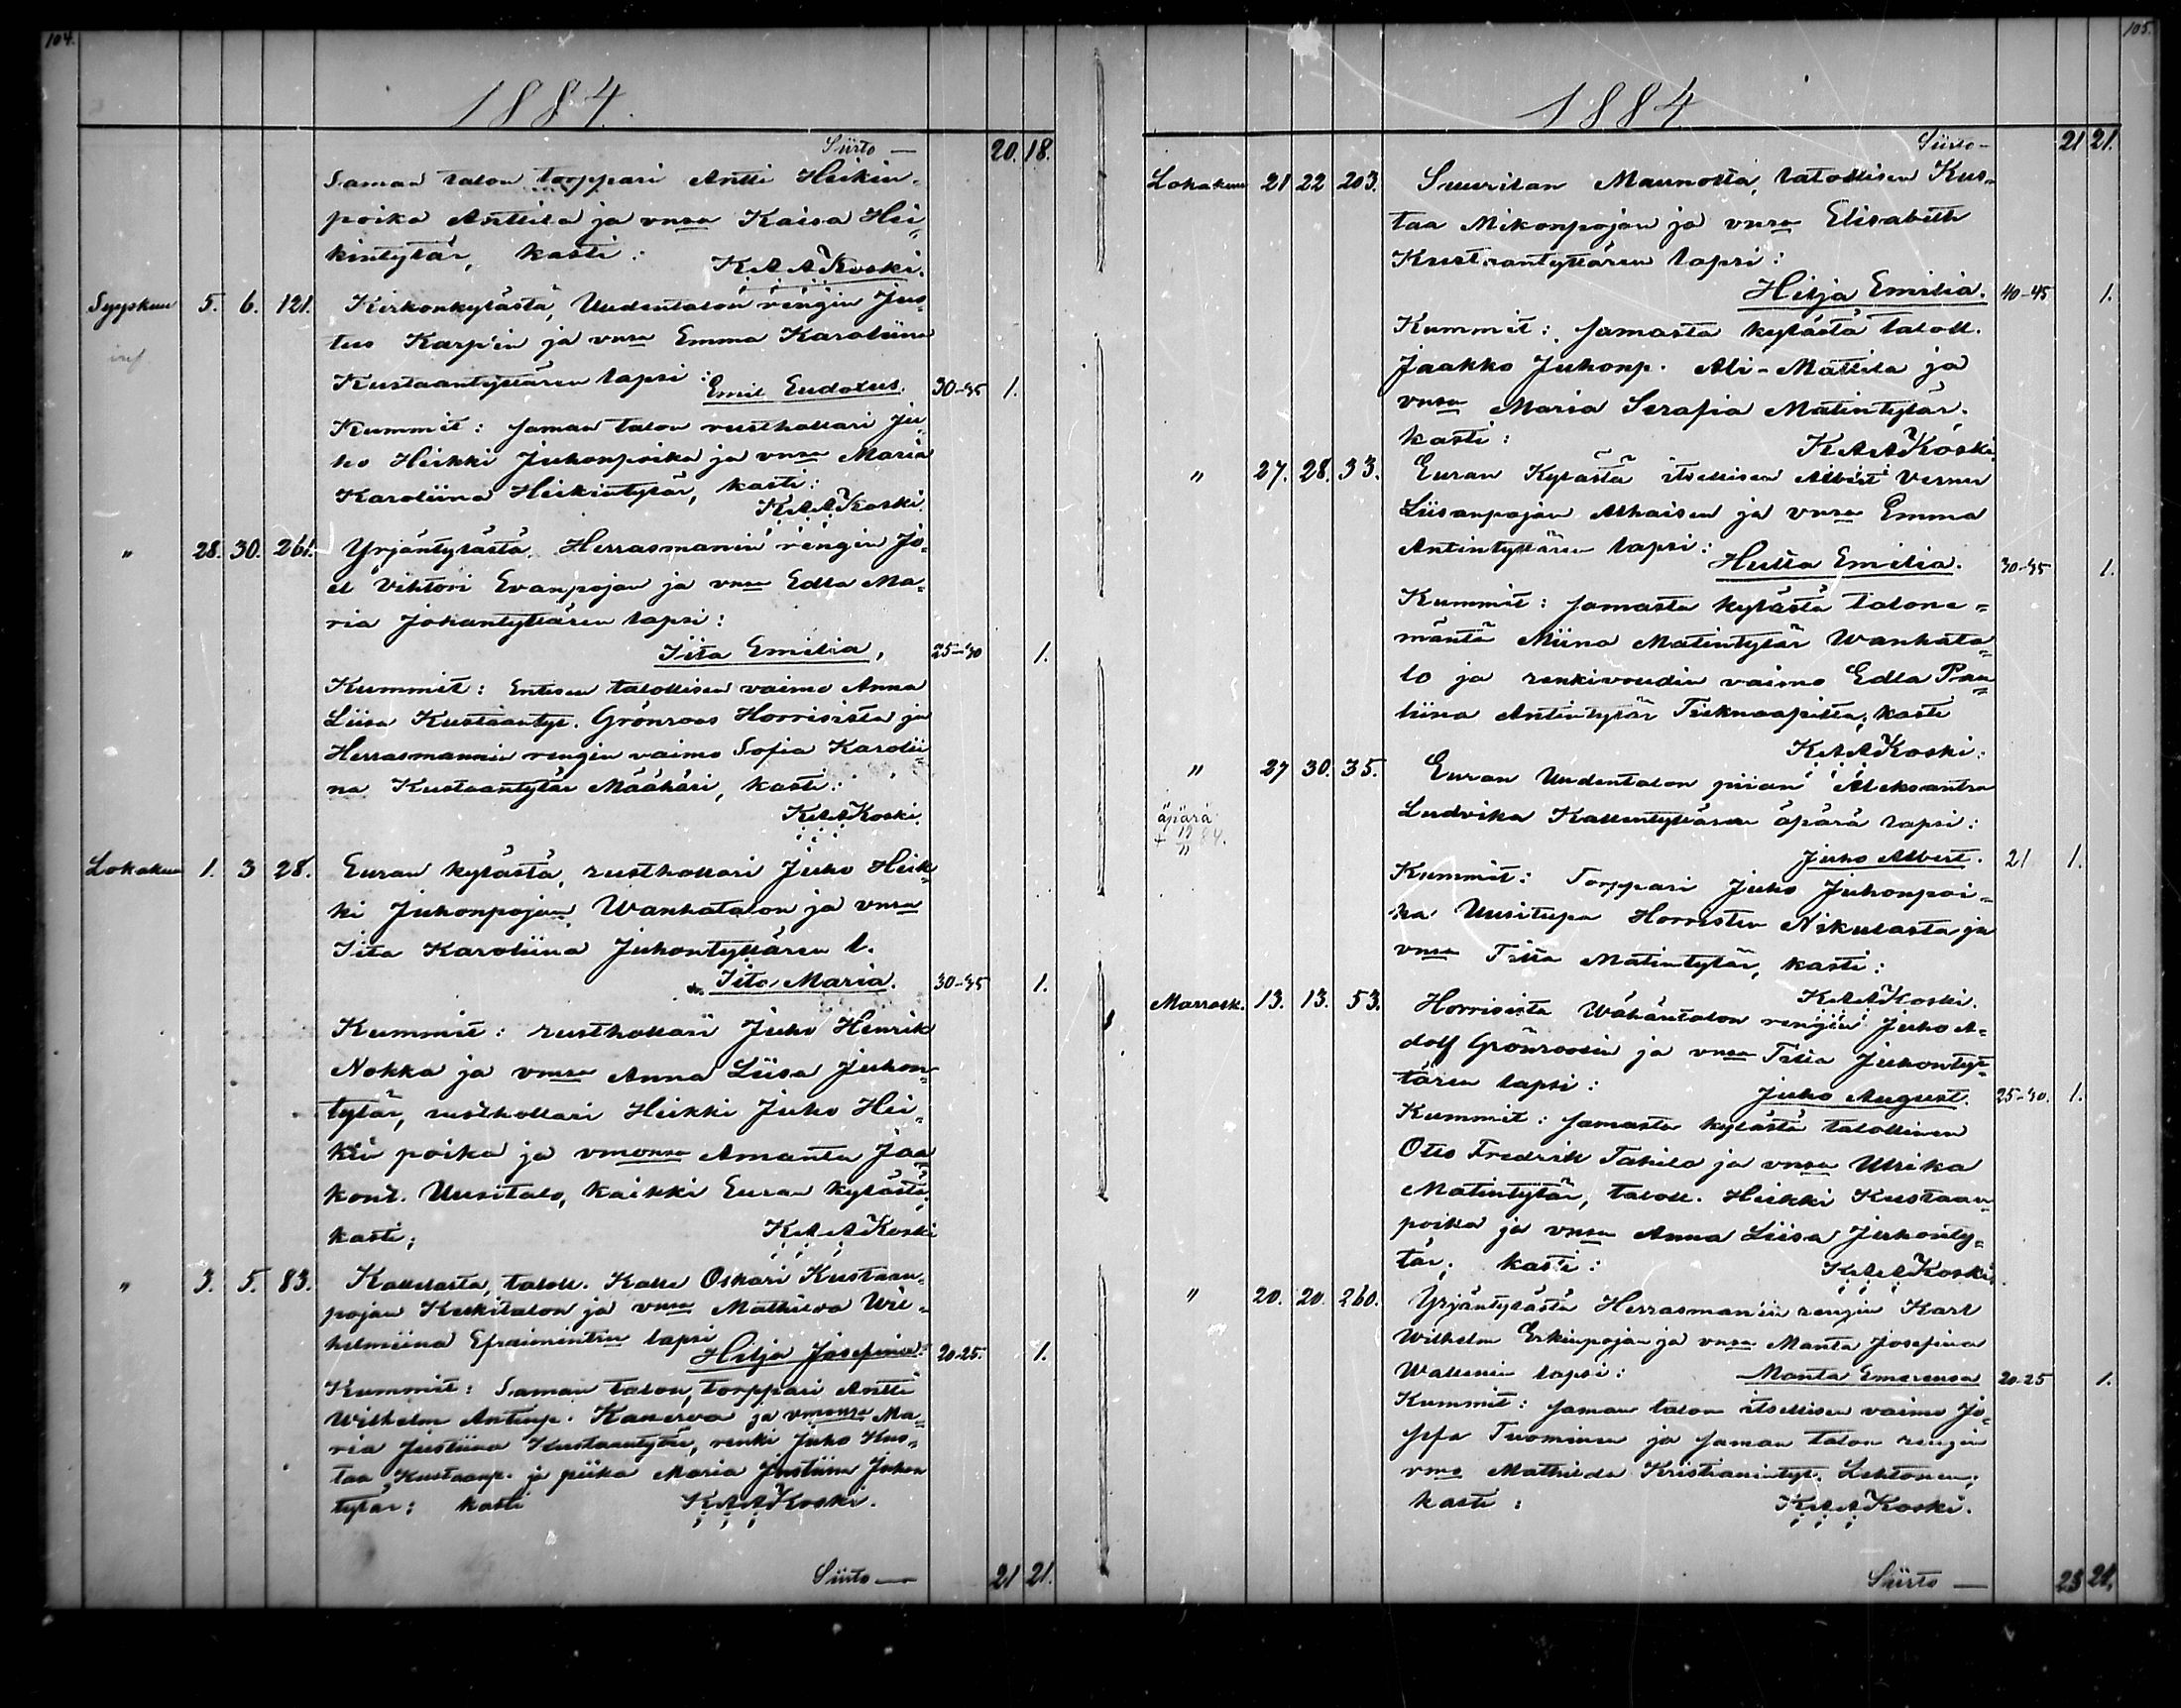 104.
1884.
Siirto — 20. 18.
Saman talon torppari Antti Heikin-
poika Anttila ja vnsa Kaisa Hei-
kintytär, kasti: K.A.A.Koski.
Syyskuu 5. 6. 121. Kirkonkylästä, Uudentalon rengin Jus-
tus Karp'in ja vnsa Emma Karoliina
Kustaantyttären lapsi: Emil Eudoxus. 30-35 1.
Kummit: saman talon rusthollari Ju-
ho Heikki Juhonpoika ja vnsa Maria
Karoliina Heikintytär, kasti:
K.A.A.Koski
" 28. 30. 261. Yrjäntylästä, Herrasmanin rengin Jo-
el Vihtori Evanpojan ja vnsa Edla Ma-
ria Johantyttären lapsi:
Iita Emilia, 25-30 1.
Kummit: Entisen talollisen vaimo Anna
Liisa Kustaantyt. Grönroos Horrisista ja
Herrasmannin rengin vaimo Sofia Karolii-
na Kustaantytär Määhäri, kasti:
K.A.A.Koski.
Lokakuu 1. 3 28. Euran kylästä, rusthollari Juho Heik-
ki Juhonpojan Wanhatalon ja vnsa
Iita Karoliina Juhontyttären l.
Iita Maria. 30-35 1.
Kummit: rusthollari Juho Henrik
Nokka ja vmsa Anna Liisa Juhon-
tytär, rusthollari Heikki Juho Hei-
kin poika ja vmonsa Amanta Jaa-
kont. Uusitalo, kaikki Euran kylästä,
kasti; K.A.A.Koski
" 3. 5. 83. Kauttasta, taloll. Kalle Oskari Kustaan-
pojan Keskitalon ja vnsa Mathilda Wil-
helmiina Efraimintrn lapsi
Hilja Josefina. 20-25. 1.
Kummit: Saman talon, torppari Antti
Wilhelm Antinp. Kanerva ja vmonsa Ma-
ria Justiina Kustaantytär, renki Juho Kus-
taa Kustaanp. ja piika Maria Justiina Juhon
tytär; kasti K.A.A.Koski.
Siirto — 21 21.
105.
1884
Siirto — 21 21.
Lokakuu 21 22 203. Suurilan Maunolta, talollisen Kus-
taa Mikonpojan ja vnsa Elisabeth
Kustaantyttären lapsi:
Hilja Emilia. 40-45 1.
Kummit: samasta kylästä taloll.
Jaakko Juhonp. Ali-Mattila ja
vnsa Maria Serafia Matintytär.
kasti: K.A.A.Koski.
" 27. 28. 33. Euran Kylästä itsellisen Albert Verner
Liisanpojan Alhaisen ja vnsa Emma
Antintyttären lapsi:
Hulta Emilia. 30-35 1.
Kummit: samasta kylästä talone-
mäntä Miina Matintytär Wanhata-
lo ja renkivoudin vaimo Edla Pau-
liina Antintytär kasti
K.A.A.Koski.
" 27 30. 35. Euran Uudentalon piian Aleksantra
Ludvika Kallentyttären äpärä lapsi:
äpärä
+ 19/11 84.
Juho Albert. 21 1.
Kummit: Torppari Juho Juhonpoi-
ka Uusitupa Horristen Nikulasta ja
vnsa Tilta Matintytär, kasti:
K.A.A.Koski.
Marrask. 13. 13. 53. Horrisista Wähäntalon rengin Juho A-
dolf Grönroosin ja vnsa Tilta Juhontyt-
tären lapsi:
Juho August. 25-30. 1.
Kummit: samasta kylästä talollinen
Otto Fredrik Tahilo ja vnsa Ulrika
Matintytär, taloll. Heikki Kustaan-
poika ja vnsa Anna Liisa Juhonty-
tär; kasti: K.A.A.Koski.
" 20. 20. 260. Yrjäntylästä Herrasmaniin rengin Karl
Wilhelm Erkinpojan ja vnsa Manta Josefina
Wallenin lapsi: Manta Emerensa 20-25 1.
Kummit: saman talon itsellisen vaimo Jo-
sefa Tuominen ja saman talon rengin
vmo Mathilda Kristianintyt. Lehtonen;
kasti: K.A.A.Koski.
Siirto — 23 21.